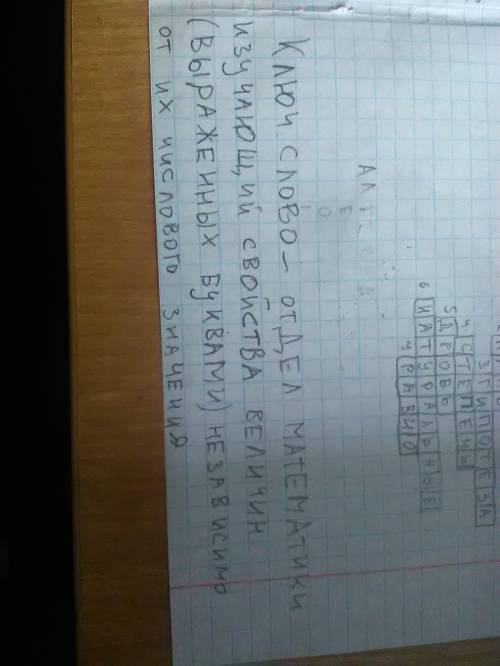 3 ГИПОТЕЗА
4 СТЕПЕНЬ
5 ДРОБЬ
6 НАТУРАЛЬНЫЕ
РАВНО
АЛГЕБРА
Е
О
КЛЮЧ. СЛОВО – ОТДЕЛ МАТЕМАТИКИ
ИЗУЧАЮЩИЙ СВОЙСТВА ВЕЛИЧИН
(ВЫРАЖЕННЫХ БУКВАМИ) НЕЗАВИСИМО
ОТ ИХ ЧИСЛОВОГО ЗНАЧЕНИЯ